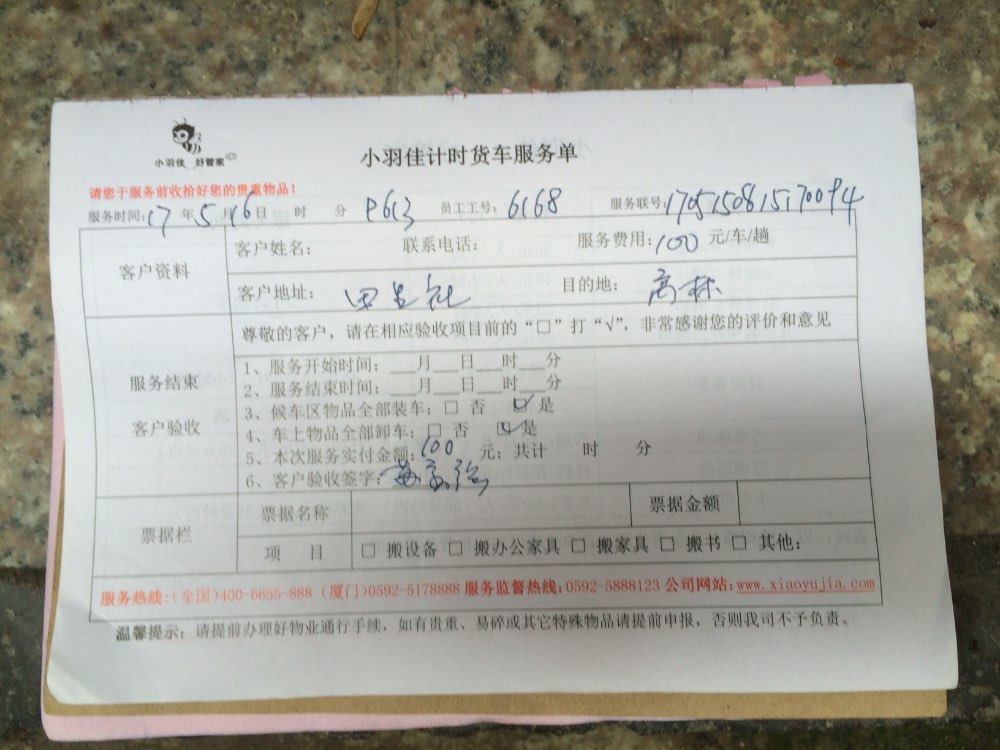 小羽佳 好管家
小羽佳计时货车服务单
请您于服务前收拾好您的贵重物品！
服务时间：17 年 5 月 16 日 时 分 P613 员工工号：6168 服务联号：1705150815170094
客户资料
客户姓名： 联系电话： 服务费用：100 元/车/趟
客户地址： 田 社 目的地： 高林
服务结束
客户验收
尊敬的客户，请在相应验收项目前的“□”打“√”，非常感谢您的评价和意见
1、服务开始时间：___月___日___时___分
2、服务结束时间：___月___日___时___分
3、候车区物品全部装车：□ 否 ☑ 是
4、车上物品全部卸车：□ 否 ☑ 是
5、本次服务实付金额：100 元；共计 时 分
6、客户验收签字：
票据栏
票据名称 票据金额
项 目 □ 搬设备 □ 搬办公家具 □ 搬家具 □ 搬书 □ 其他：
服务热线：(全国)400-6655-888 (厦门)0592-5178888 服务监督热线：0592-5888123 公司网站：www.xiaoyujia.com
温馨提示：请提前办理好物业通行手续，如有贵重、易碎或其它特殊物品请提前申报，否则我司不予负责。